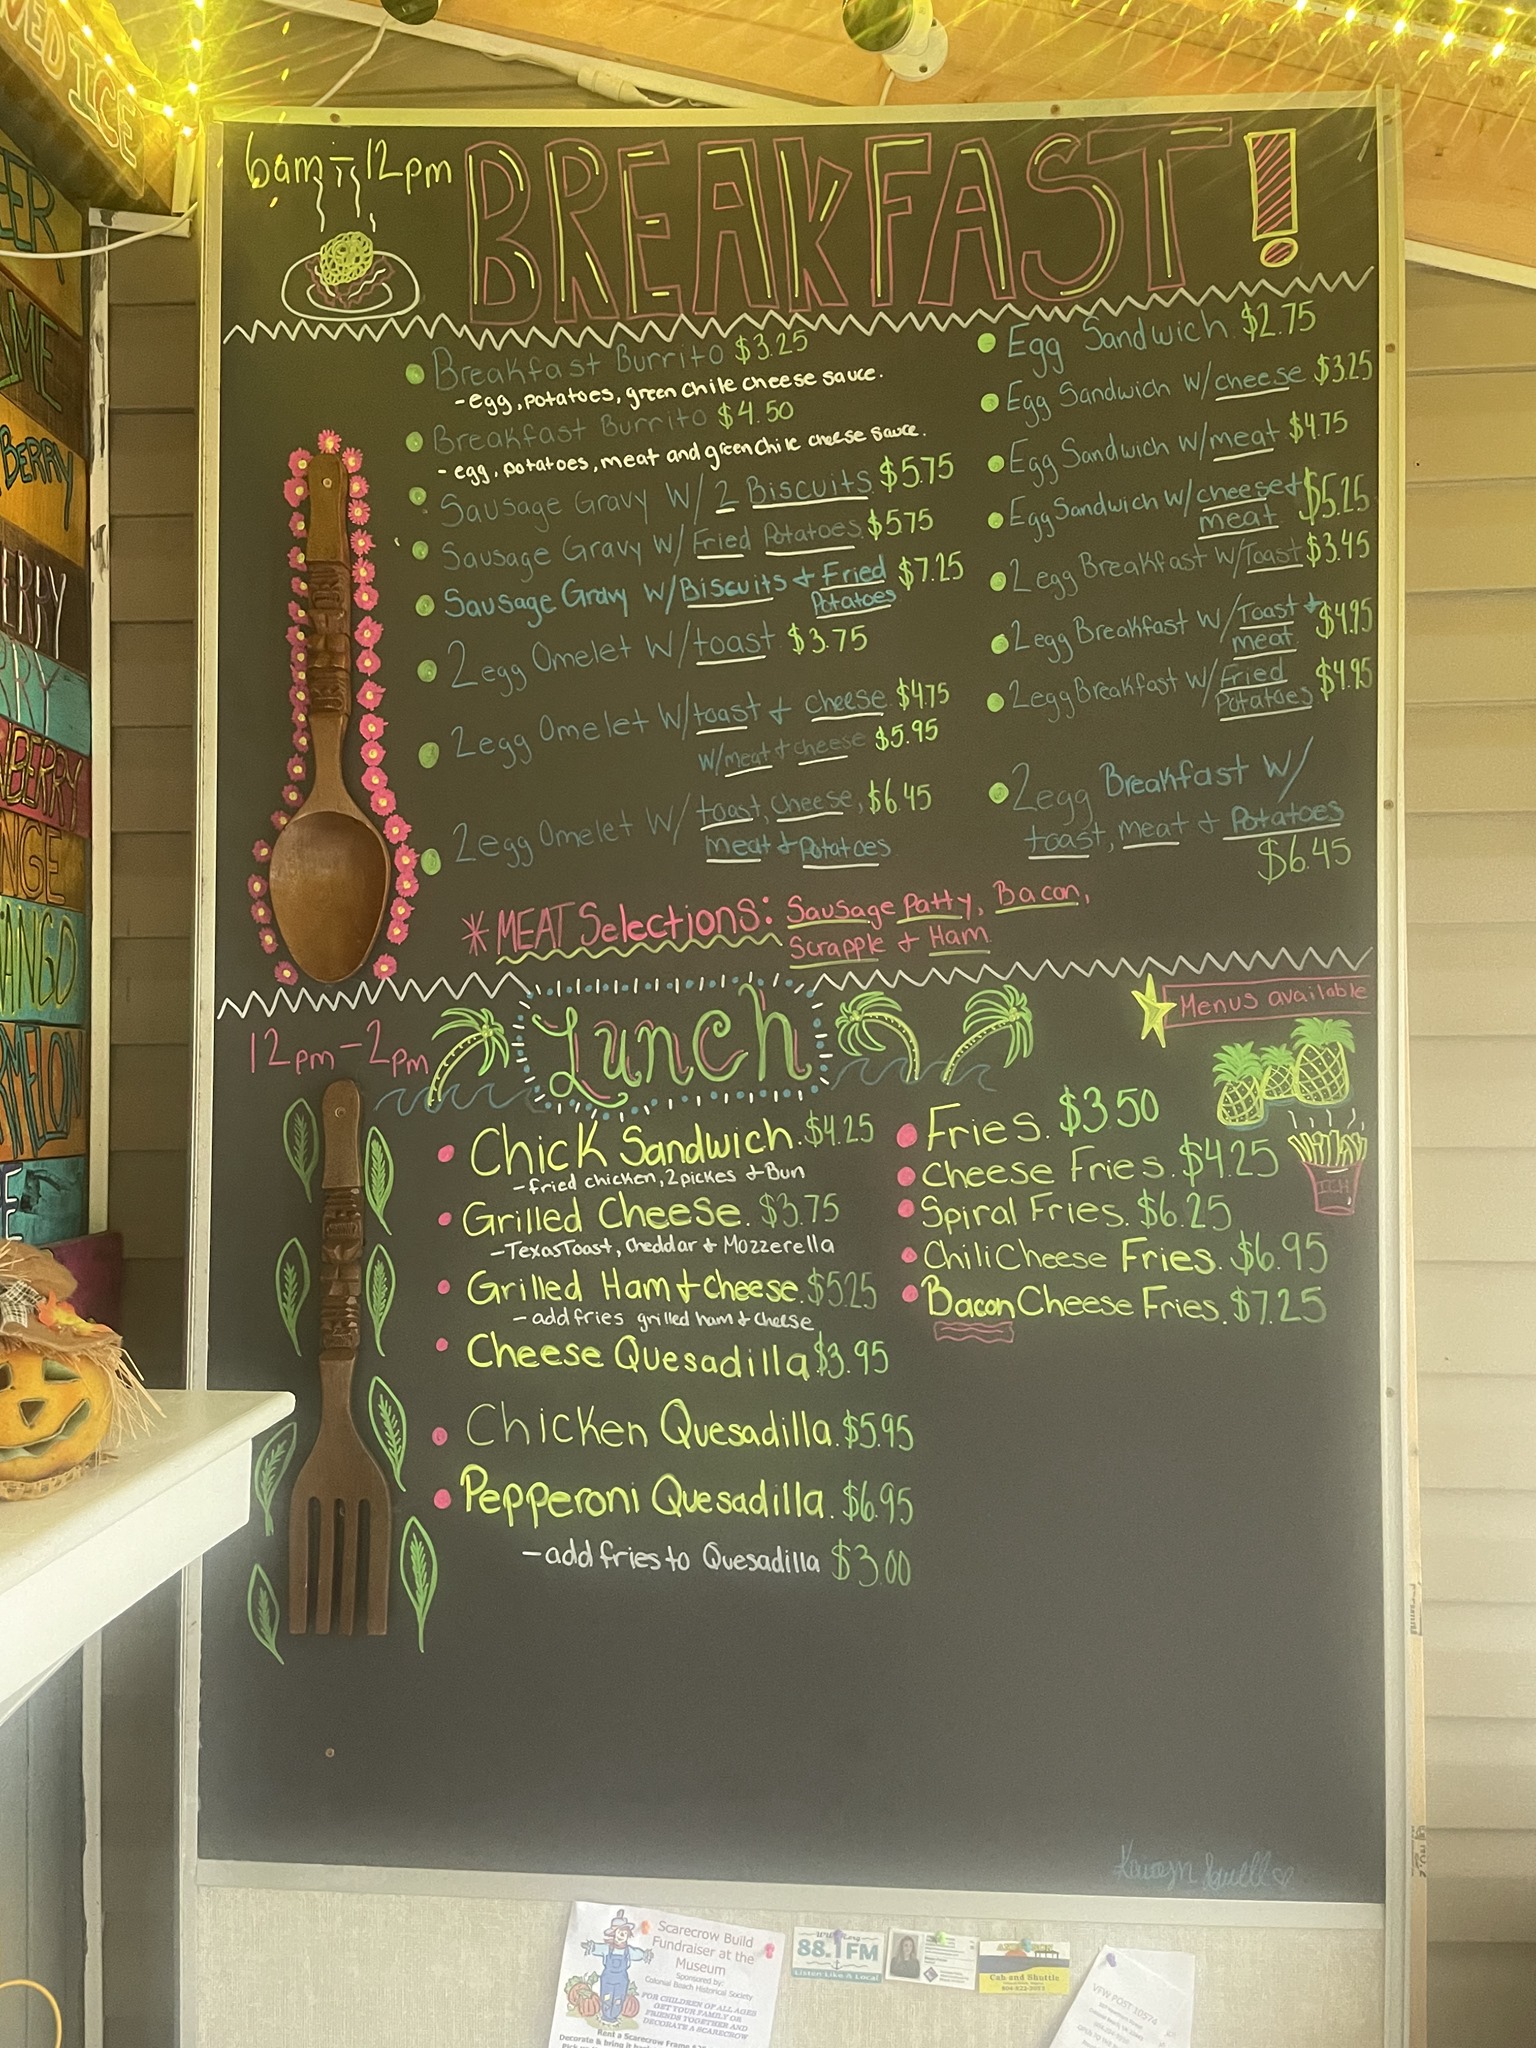 VED ICE
6am-12pm
BREAKFAST!
Breakfast Burrito $3.25
-egg, potatoes, green chile cheese sauce.
Breakfast Burrito $4.50
-egg, potatoes, meat and green chile cheese sauce.
Sausage Gravy W/ 2 Biscuits $5.75
Sausage Gravy W/ Fried Potatoes $5.75
Sausage Gravy W/Biscuits + Fried $7.25
Potatoes
2 egg Omelet W/toast $3.75
2 egg Omelet W/toast + cheese $4.75
W/meat + cheese $5.95
2 egg Omelet W/ toast, cheese, $6.45
meat + Potatoes
Egg Sandwich. $2.75
Egg Sandwich W/cheese $3.25
Egg Sandwich W/meat $4.75
Egg Sandwich W/cheese + $5.25
meat
2 egg Breakfast W/Toast $3.45
2 egg Breakfast W/Toast + $4.95
meat
2 egg Breakfast W/Fried $4.95
Potatoes
2 egg Breakfast W/
toast, meat + Potatoes
$6.45
*MEAT Selections: Sausage patty, Bacon,
Scrapple + Ham
12pm-2pm
Lunch
Menus available
Chick Sandwich. $4.25
-fried chicken, 2 pickes + Bun
Grilled Cheese. $3.75
-Texas Toast, Cheddar + Mozzerella
Grilled Ham + cheese. $5.25
-add fries grilled ham + cheese
Cheese Quesadilla $3.95
Chicken Quesadilla. $5.95
Pepperoni Quesadilla. $6.95
-add fries to Quesadilla $3.00
Fries. $3.50
Cheese Fries. $4.25
Spiral Fries. $6.25
Chili Cheese Fries. $6.95
Bacon Cheese Fries. $7.25
Scarecrow Build
Fundraiser at the
Museum
Sponsored by:
Colonial Beach Historical Society
FOR CHILDREN OF ALL AGES
GET YOUR FAMILY OR
FRIENDS TOGETHER AND
DECORATE A SCARECROW
Rent a Scarecrow Frame
88.1 FM
Listen Like A Local
Cab and Shuttle
VFW POST 10574
BERRY
ERRY
BERRY
NGE
ANGO